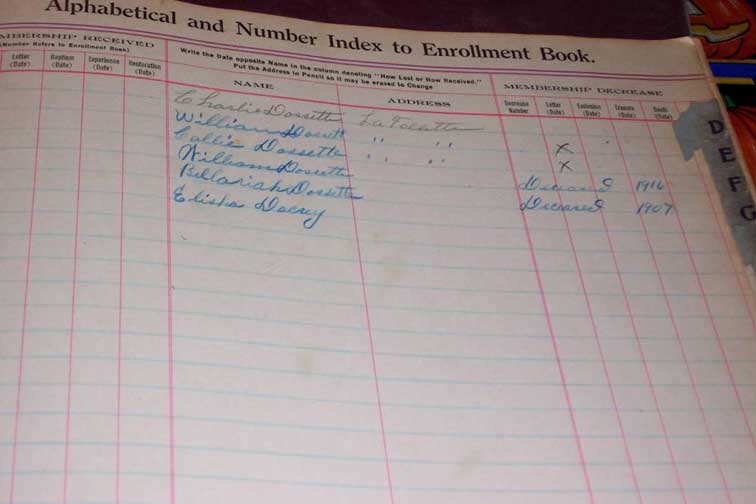 Alphabetical and Number Index to Enrollment Book.
MEMBERSHIP RECEIVED
(Number Refers to Enrollment Book)
Write the Date opposite Name in the column denoting "How Lost or How Received."
Put the Address in Pencil so it may be erased to Change
MEMBERSHIP DECREASE
Letter (Date) Baptism (Date) Experience (Date) Restoration (Date) NAME ADDRESS Decrease Number Letter (Date) Exclusion (Date) Erasure (Date) Death (Date)
Charlie Dossette LaFollette
William Dossett " "
Callie Dossette " " X
William Dossette X
Billariah Dossette Deceased 1916
Elisha Deceased 1907
D
E
F
G